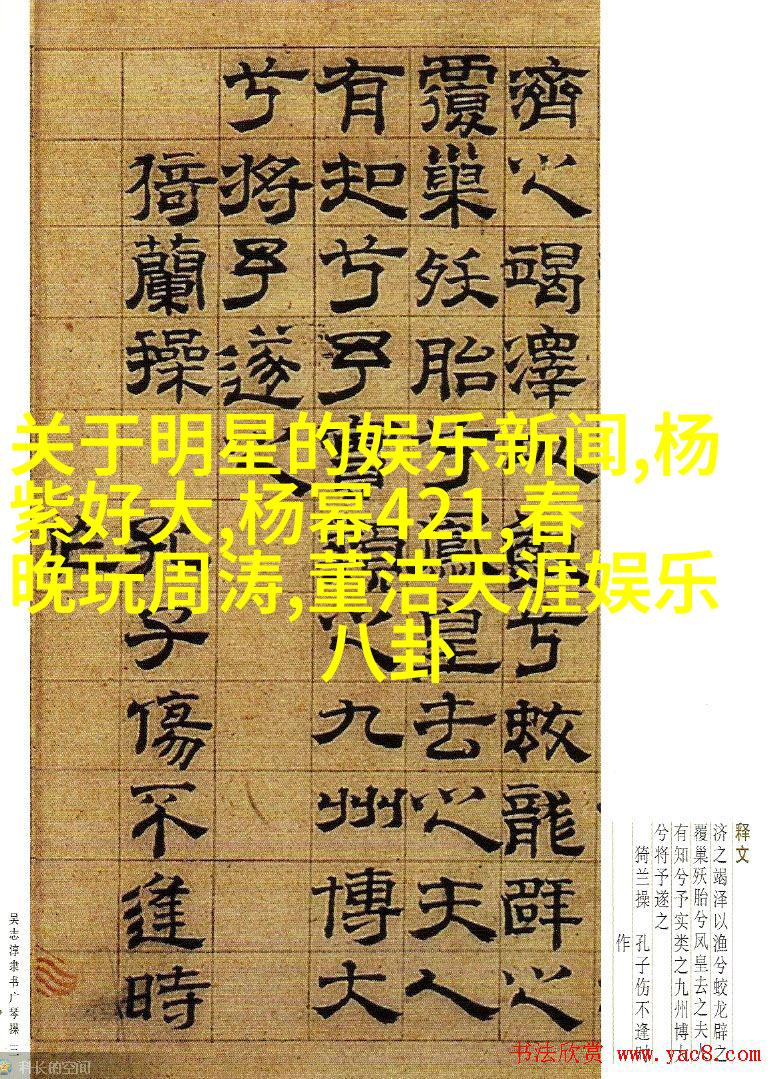 关于明星的娱乐新闻,杨
紫好大,杨幂421,春
晚玩周涛,董洁天涯娱乐
八卦
濟之竭澤以漁兮蛟龍辟之
覆巢殀胎兮鳳皇去之夫人
有知兮予實類之九州博大
兮將予遂之
猗蘭操 孔子傷不逢時
作
释文
济之竭泽以渔兮蛟龙辟之
覆巢殀胎兮凤皇去之夫
有知兮予实类之九州博
兮将予遂之
猗兰操 孔子伤不逢
作
吴志淳隶书广琴操 三
科长的空间
书法欣赏 www.yac8.com